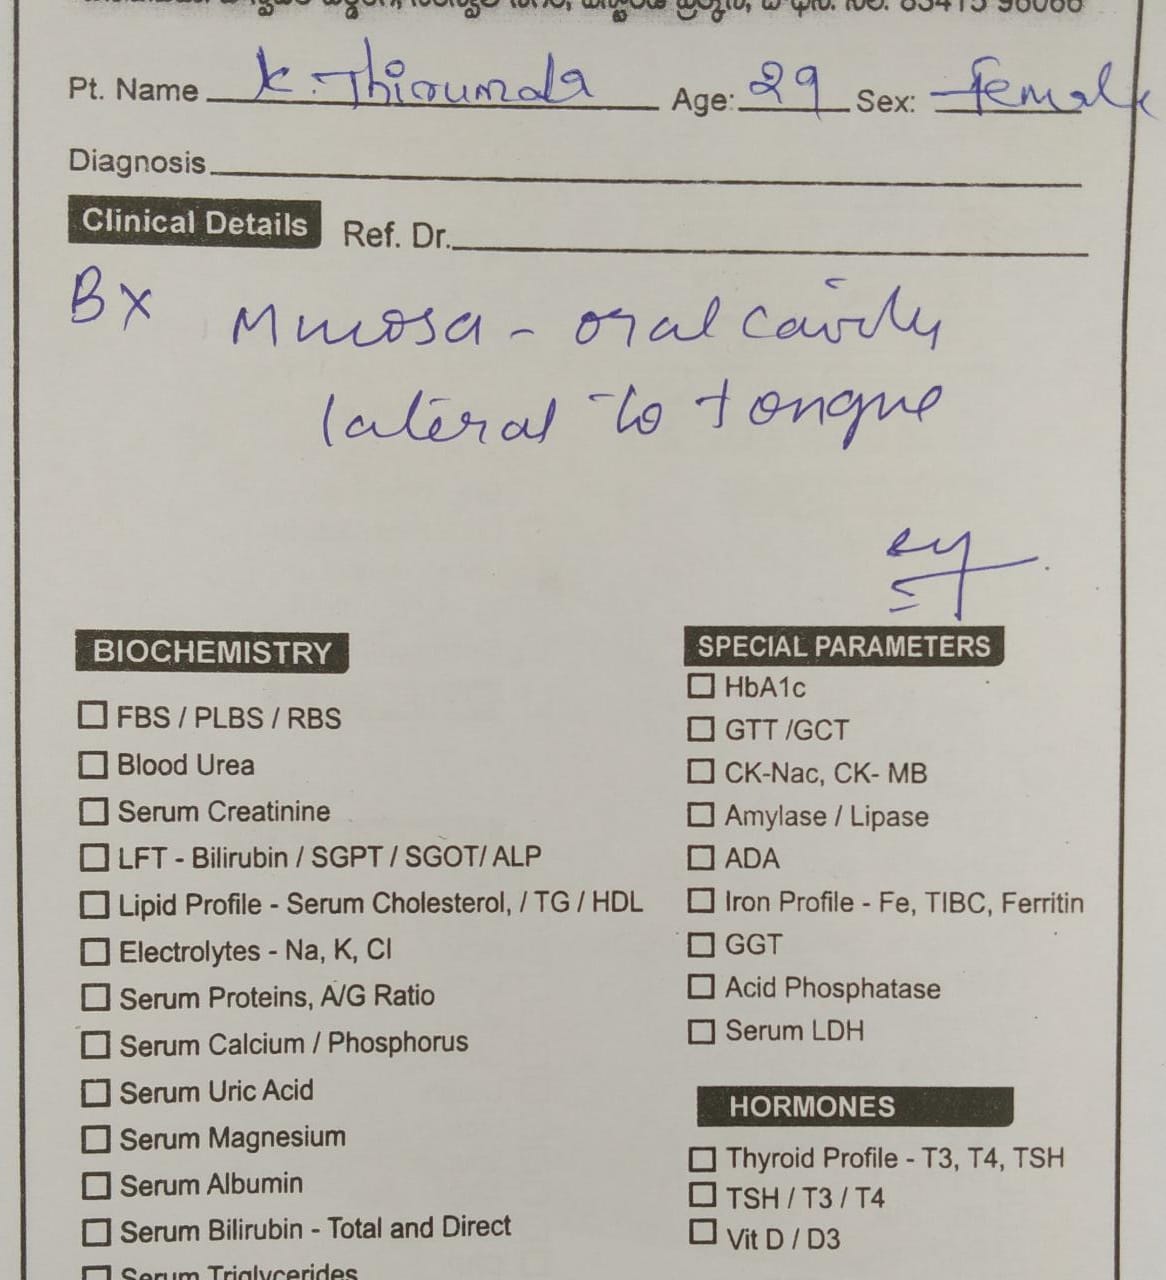 83415 96066
Pt. Name K. Thirumala Age: 29 Sex: Female
Diagnosis
Clinical Details Ref. Dr.
Bx Mucosa - oral cavity
lateral to tongue
BIOCHEMISTRY
FBS / PLBS / RBS
Blood Urea
Serum Creatinine
LFT - Bilirubin / SGPT / SGOT/ ALP
Lipid Profile - Serum Cholesterol, / TG / HDL
Electrolytes - Na, K, Cl
Serum Proteins, A/G Ratio
Serum Calcium / Phosphorus
Serum Uric Acid
Serum Magnesium
Serum Albumin
Serum Bilirubin - Total and Direct
Serum Triglycerides
SPECIAL PARAMETERS
HbA1c
GTT /GCT
CK-Nac, CK- MB
Amylase / Lipase
ADA
Iron Profile - Fe, TIBC, Ferritin
GGT
Acid Phosphatase
Serum LDH
HORMONES
Thyroid Profile - T3, T4, TSH
TSH / T3 / T4
Vit D / D3